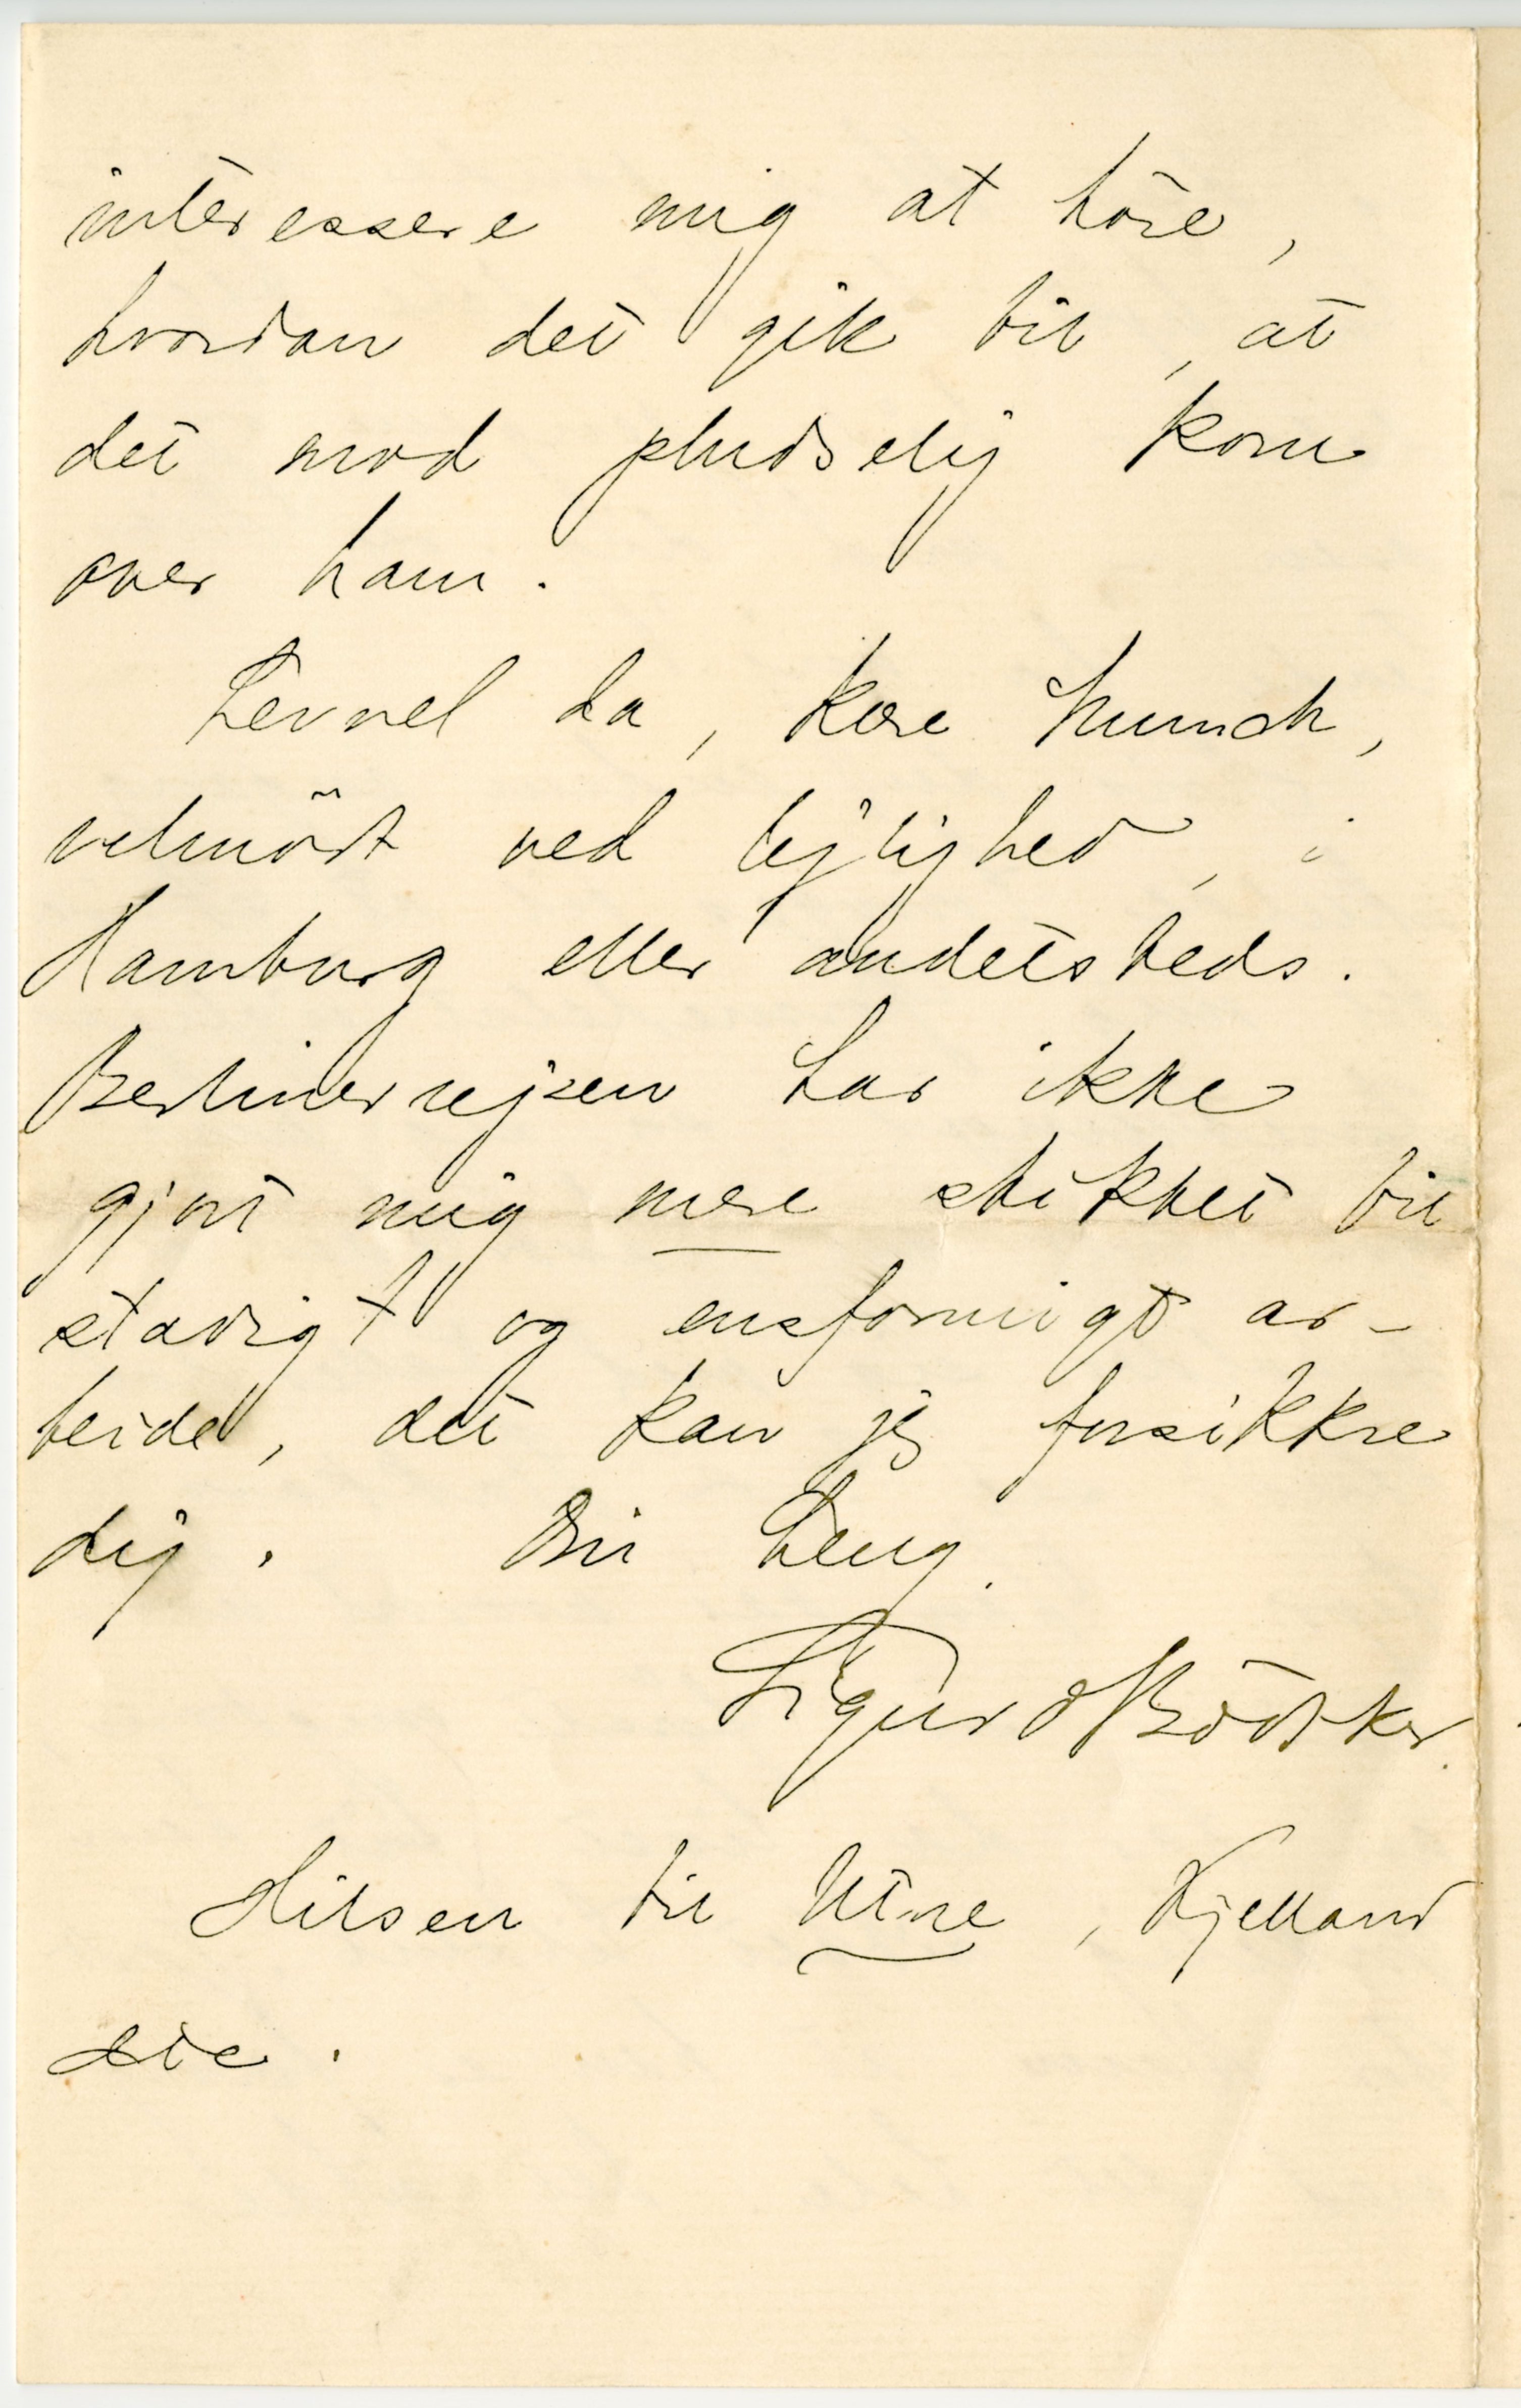 interessere mig at höre,
hvordan det gik til, at
det mod pludselig kom
over ham.
Levvel da, kære Munch,
velmödt ved lejlighed, i
Hamburg eller andetsteds.
Berlinerrejsen har ikke
gjort mig mere skikket til
stadigt og ensformigt ar-
beide, det kan jeg forsikkre
dig. Din heng.
Sigurd Bödtker.
Hilsen til , Kjelland
etc.